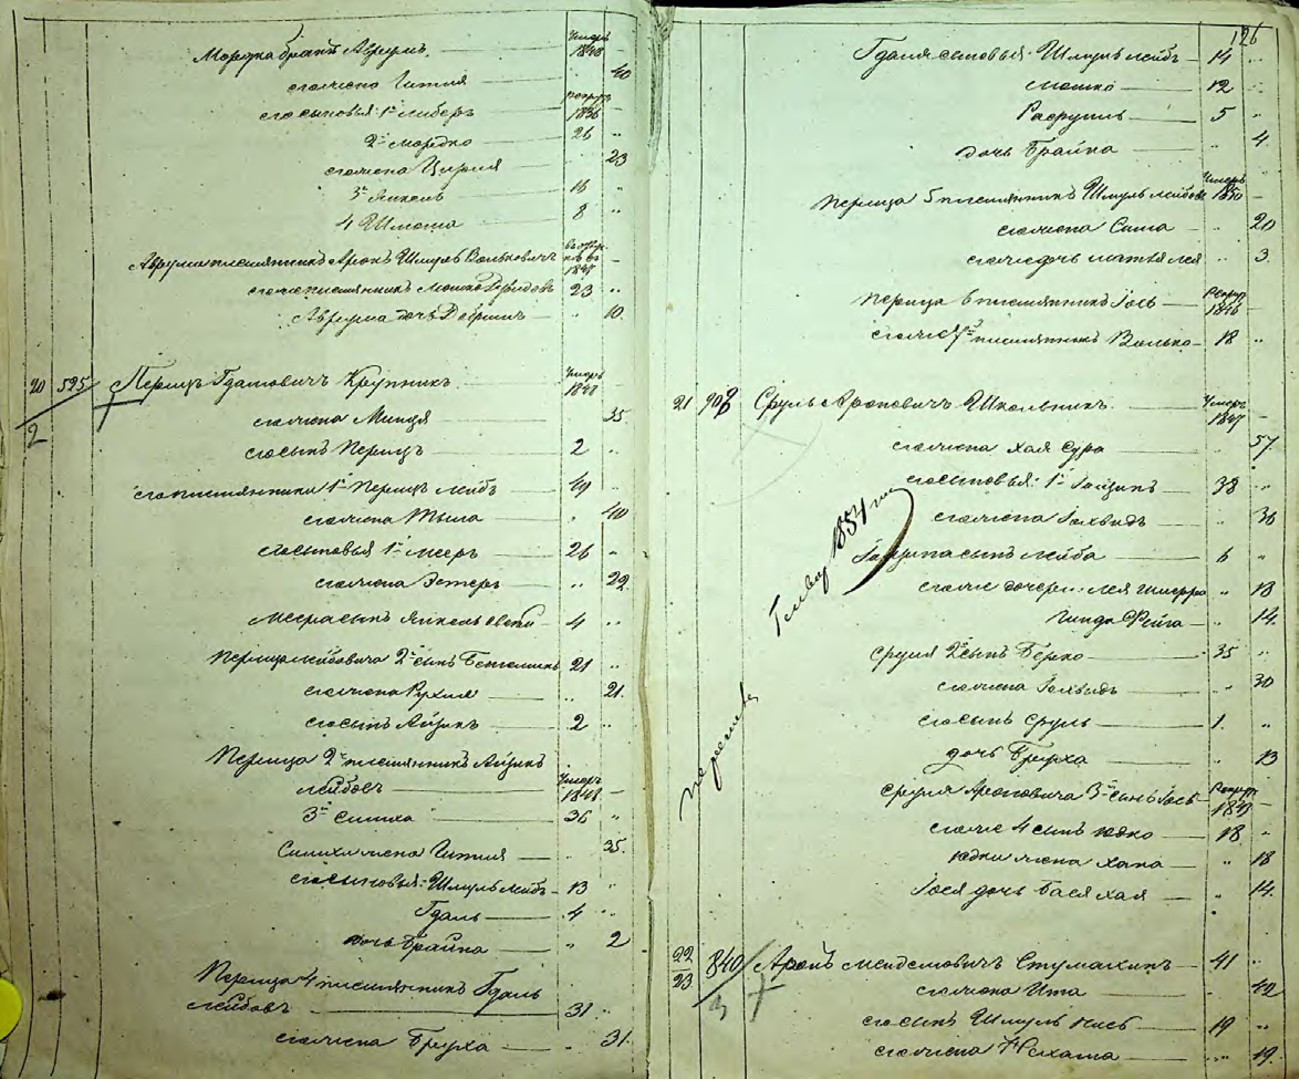 Мордка братъ Аврумъ умеръ 1848
его жена Гитля 40
его сыновья: 1й Либеръ рекрут 1836
2й Мордко 26 "
его жена Цирля 23
3й Янкель 16 "
4 Шмона 8 "
Аврума племянникъ Аронъ Шмуль Вольковичъ 1847
его же племянникъ Мошко Дувидовъ 23 "
Аврума дочь " 10.
20 525 Перецъ Гдалiовичъ Крупникъ умеръ 1848
2
его жена Минця 35
его сынъ Перецъ 2 "
его племянники 1й Перецъ Лейбъ 49 "
его жена Тыла " 40
его сыновья 1й Мееръ 26 "
его жена Эстеръ " 22.
Меера сынъ Янкель 4 "
Переца Лейбовича 2й сынъ 21 "
его жена Рухля " 21.
его сынъ Айзикъ 2 "
Переца 2й племянникъ Айзикъ
Лейбовъ умеръ 1848
3й Симха 36 "
Симхи жена Гитля " 35.
его сыновья: Шмуль Лейбъ 13 "
Гдаль 4 "
дочь Брайна " 2
Переца 4 племянникъ Гдаль
Лейбовъ 31 "
его жена Бруха " 31.
126
Гдаля сыновья: Шмуль Лейбъ 14 "
Мошко 12 "
5 "
дочь Брайна " 4
Переца 5 племянникъ Шмуль Лейбовъ умеръ 1850
его жена Сима 20
его же дочь Лея " 3
Переца 6 племянникъ Iось рекрут 1846
его же 7й племянникъ Волько 18 "
21 908 Сруль Ароновичъ Школьникъ умеръ 1847
его жена Хая Сура " 57.
его сыновья: 1й Iоцикъ 38 "
его жена Iохведъ " 36
Iоцика сынъ Лейба 6 "
его же дочери: Лея " 18
Гинда Фейга " 14.
Сруля 2й сынъ Берко 35 "
его жена Iохведъ " 30
его сынъ Сруль 1. "
дочь Бруха " 13
Сруля Ароновича 3й сынъ Iось рекрут 1849
его же 4 сынъ Юдко 18 "
Юдки жена Хана " 18
Iося дочь Бася Хая " 14.
1854
22 840 Аронъ Менделовичъ 41 "
23
3
его жена Ита " 42
его сынъ Шмуль 19 "
его жена Нехама " 19.